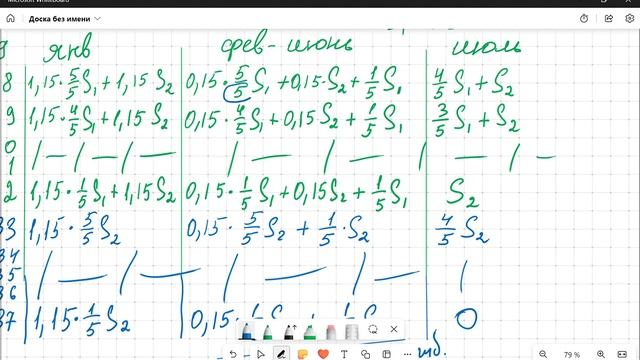 Microsoft Whiteboard
Доска без имени
янв фев-июнь июль
8 1,15·5/5 S₁ + 1,15 S₂ 0,15·5/5 S₁ + 0,15·S₂ + 1/5 S₁ 4/5 S₁ + S₂
9 1,15·4/5 S₁ + 1,15 S₂ 0,15·4/5 S₁ + 0,15 S₂ + 1/5 S₁ 3/5 S₁ + S₂
0 /—/—/— /—/—/—/—
1
2 1,15·1/5 S₁ + 1,15 S₂ 0,15·1/5 S₁ + 0,15 S₂ + 1/5 S₁ S₂
33 1,15·5/5 S₂ 0,15·5/5 S₂ + 1/5·S₂ 4/5 S₂
34
35 /—/— /—/— /
36
37 1,15·1/5 S₂ 0,15· 0
79 %